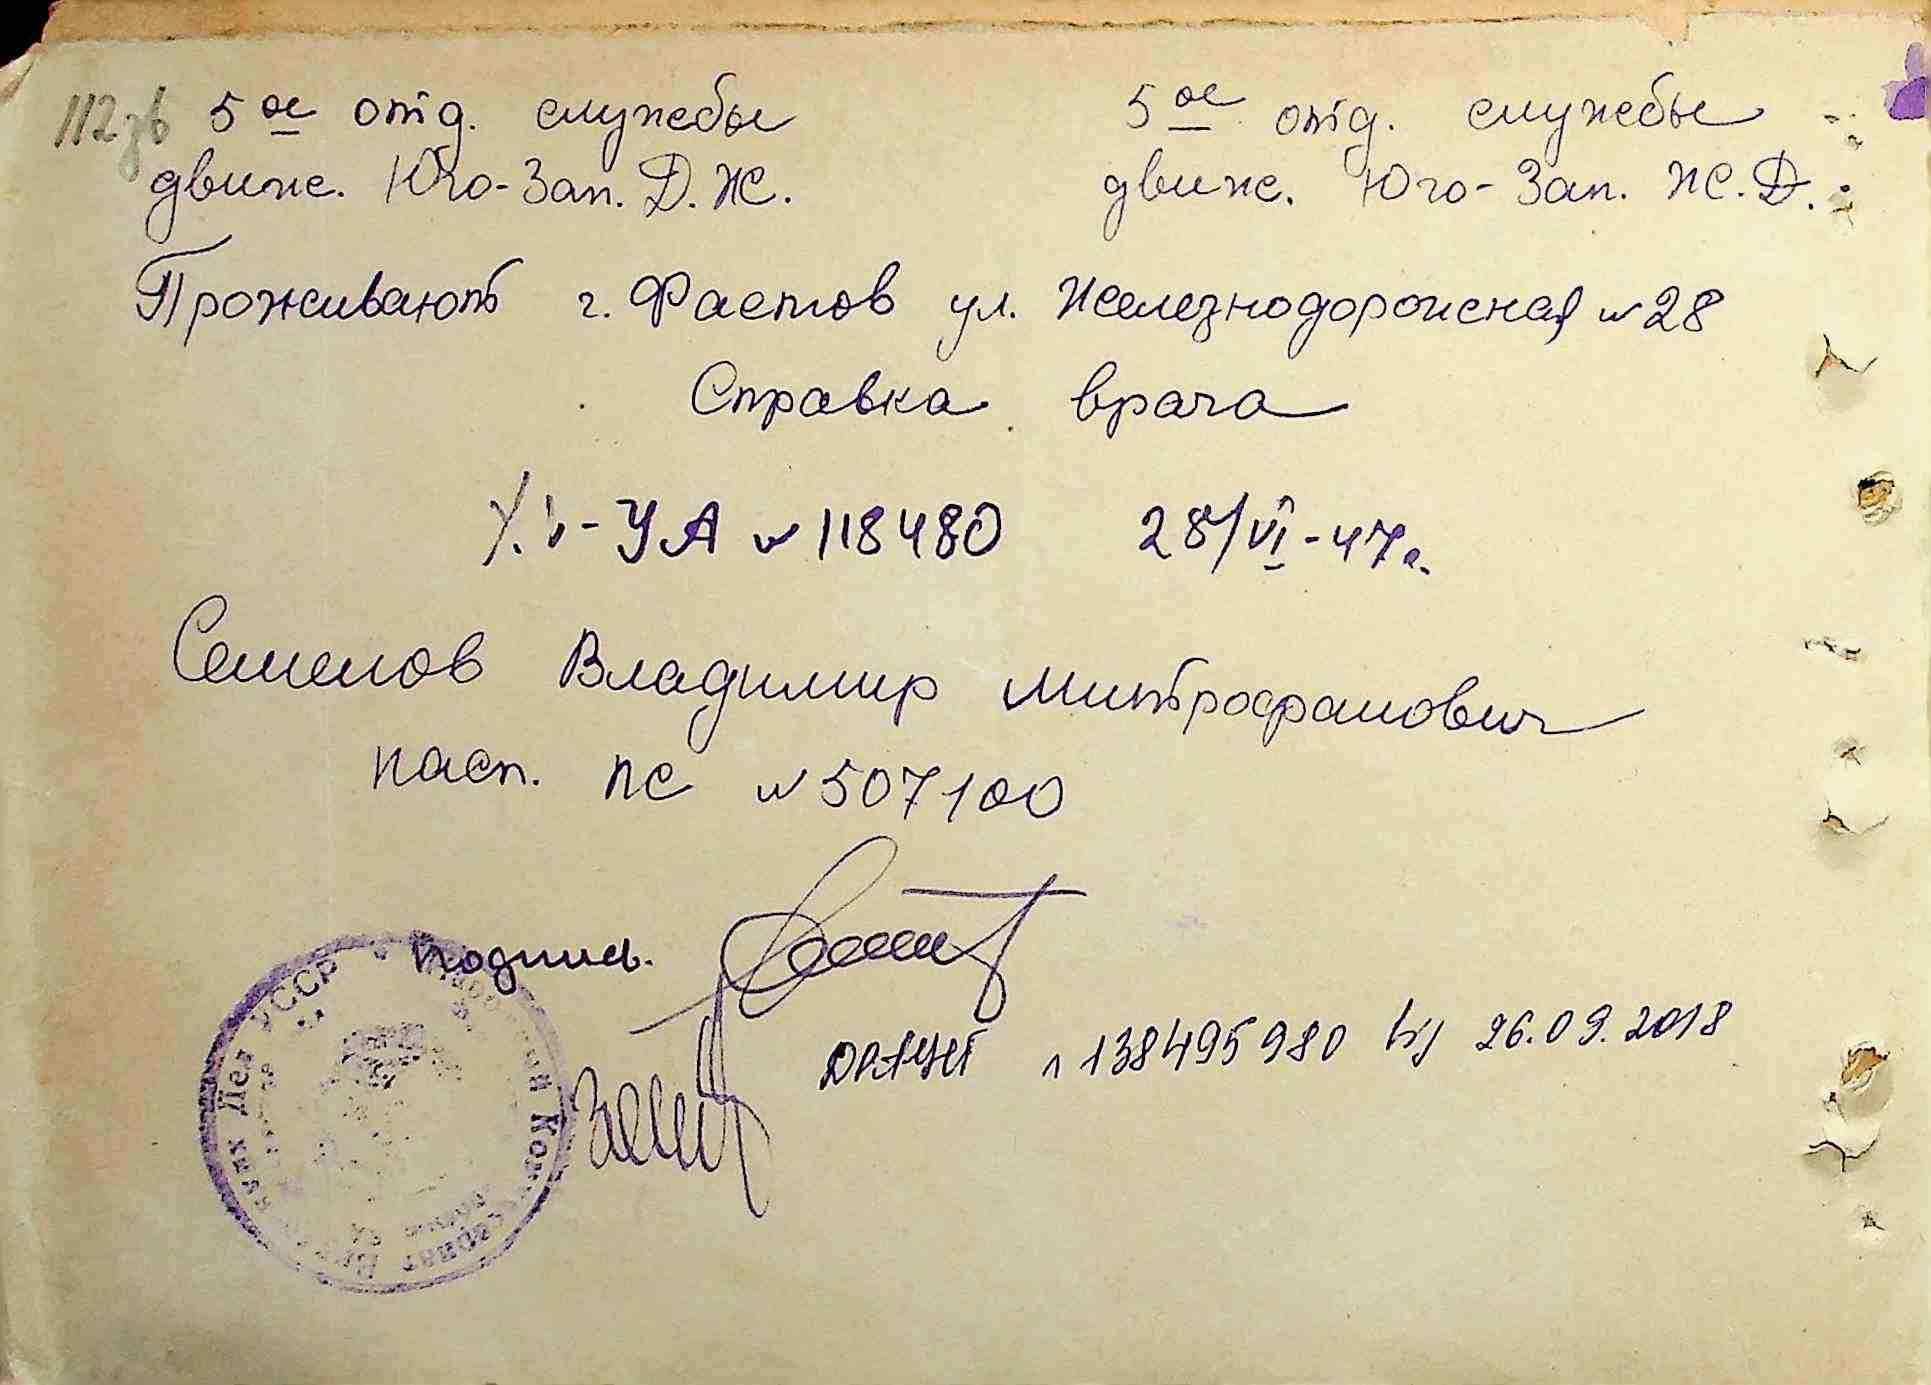 112зв
5ое отд. службы
движ. Юго-Зап. Д.Ж.
5ое отд. службы
движ. Юго-Зап. Ж.Д.
Проживают г. Фастов ул. Железнодорожная №28
Справка врача
-УА №118480 28/VI-47г.
Семенов Владимир Митрофанович
пасп. ПС №507100
Подпись.
138495980 26.09.2018
УССР
Дел